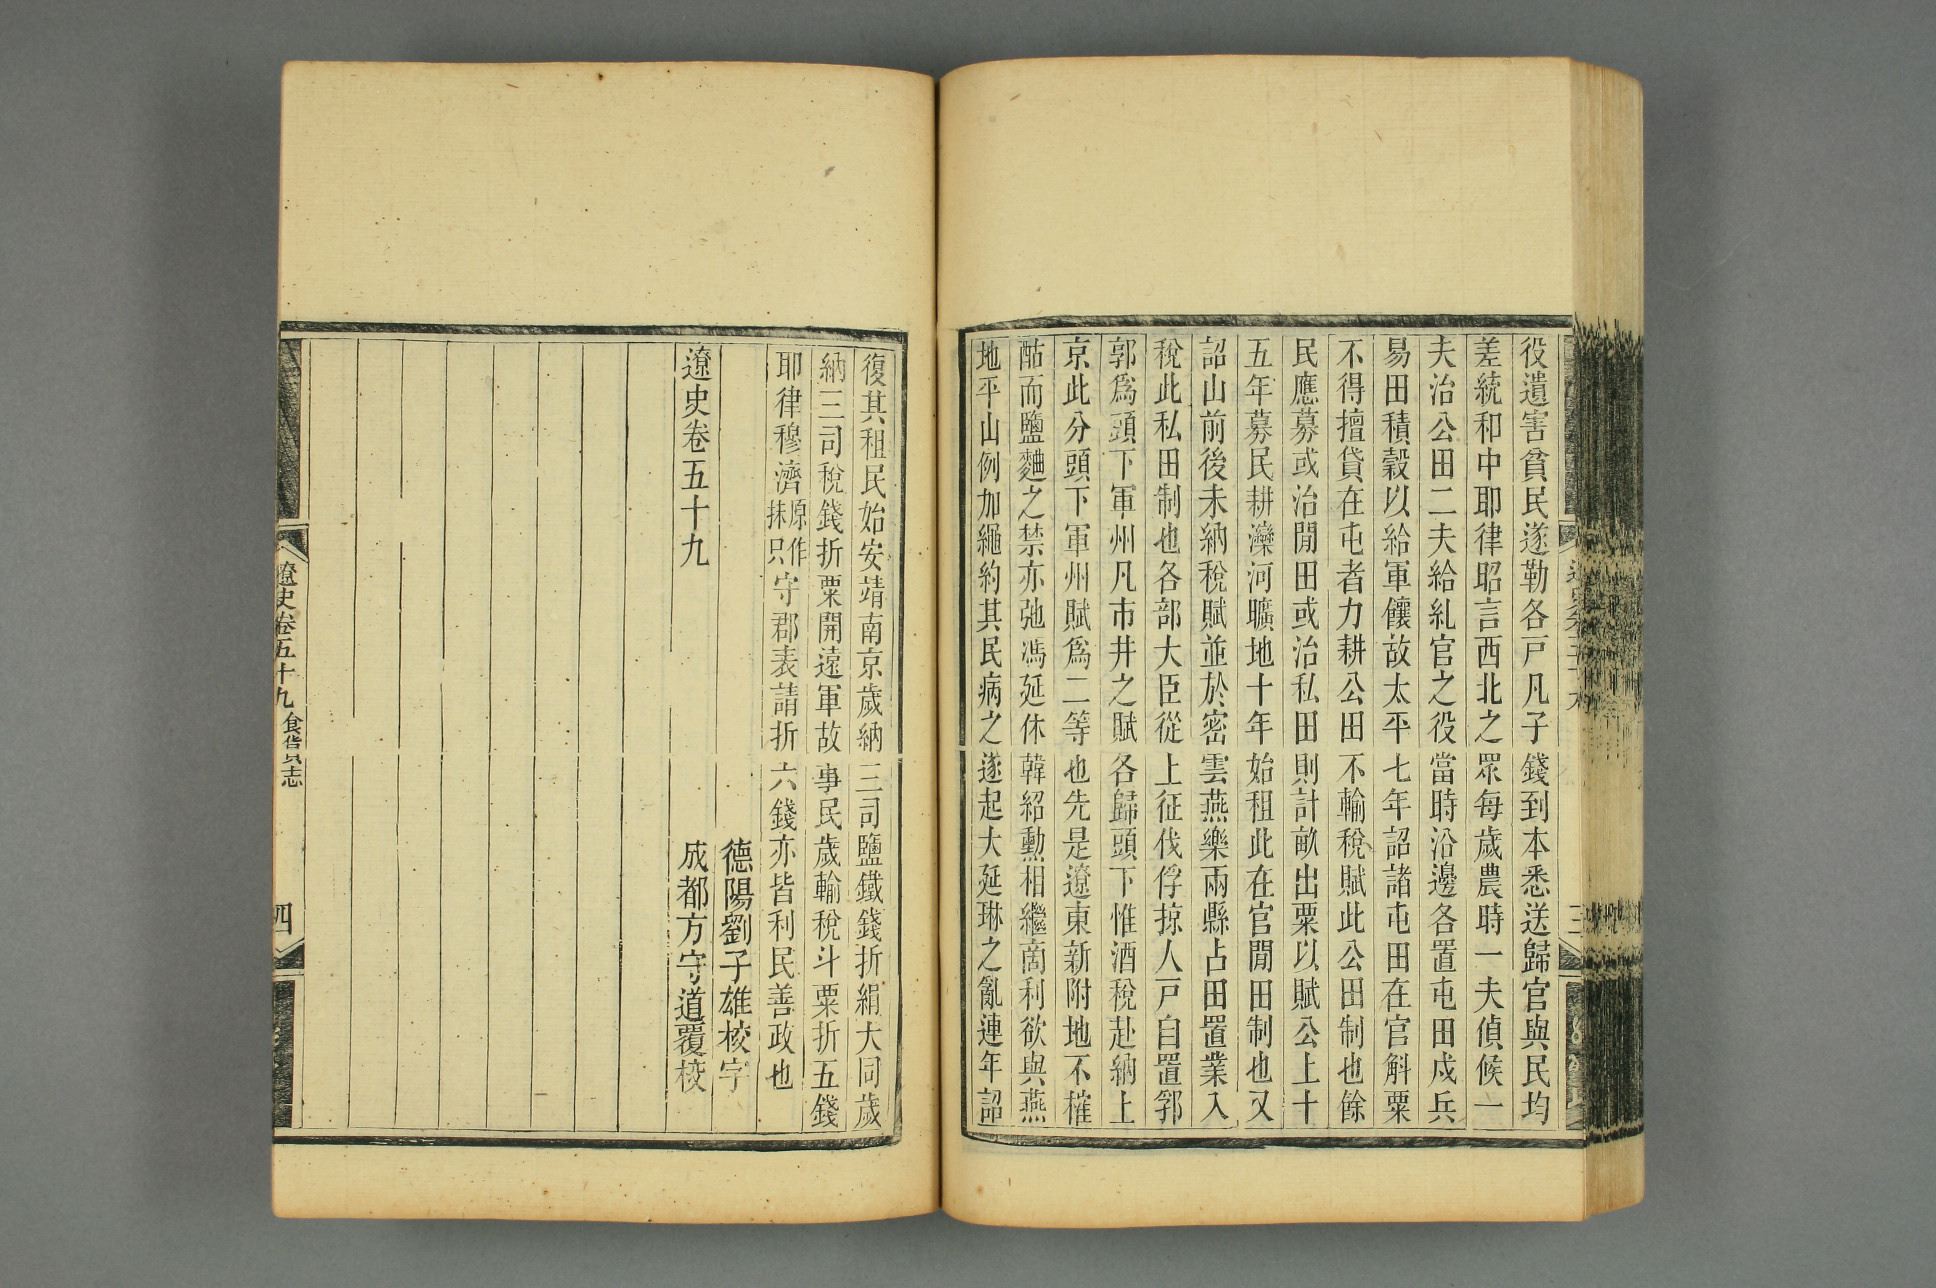 役遺害貧民遂勒各戸凡子錢到本悉送歸官與民均
差統和中耶律昭言西北之眾每歲農時一夫偵候一
夫治公田二夫給糺官之役當時沿邊各置屯田戍兵
易田積穀以給軍饟故太平七年詔諸屯田在官斛粟
不得擅貸在屯者力耕公田不輸稅賦此公田制也餘
民應募或治閒田或治私田則計畝出粟以賦公上十
五年募民耕灤河曠地十年始租此在官閒田制也又
詔山前後未納稅賦並於密雲燕樂兩縣占田置業入
稅此私田制也各部大臣從上征伐俘掠人戸自置郛
郭爲頭下軍州凡市井之賦各歸頭下惟酒稅赴納上
京此分頭下軍州賦爲二等也先是遼東新附地不榷
酤而鹽麯之禁亦弛馮延休韓紹勳相繼商利欲與燕
地平山例加繩約其民病之遂起大延琳之亂連年詔
復其租民始安靖南京歲納三司鹽鐵錢折絹大同歲
納三司稅錢折粟開遠軍故事民歲輸稅斗粟折五錢
耶律穆濟原作抹只守郡表請折六錢亦皆利民善政也
德陽劉子雄校字
遼史卷五十九
成都方守道覆校
遼史卷五十九 食貨志
四